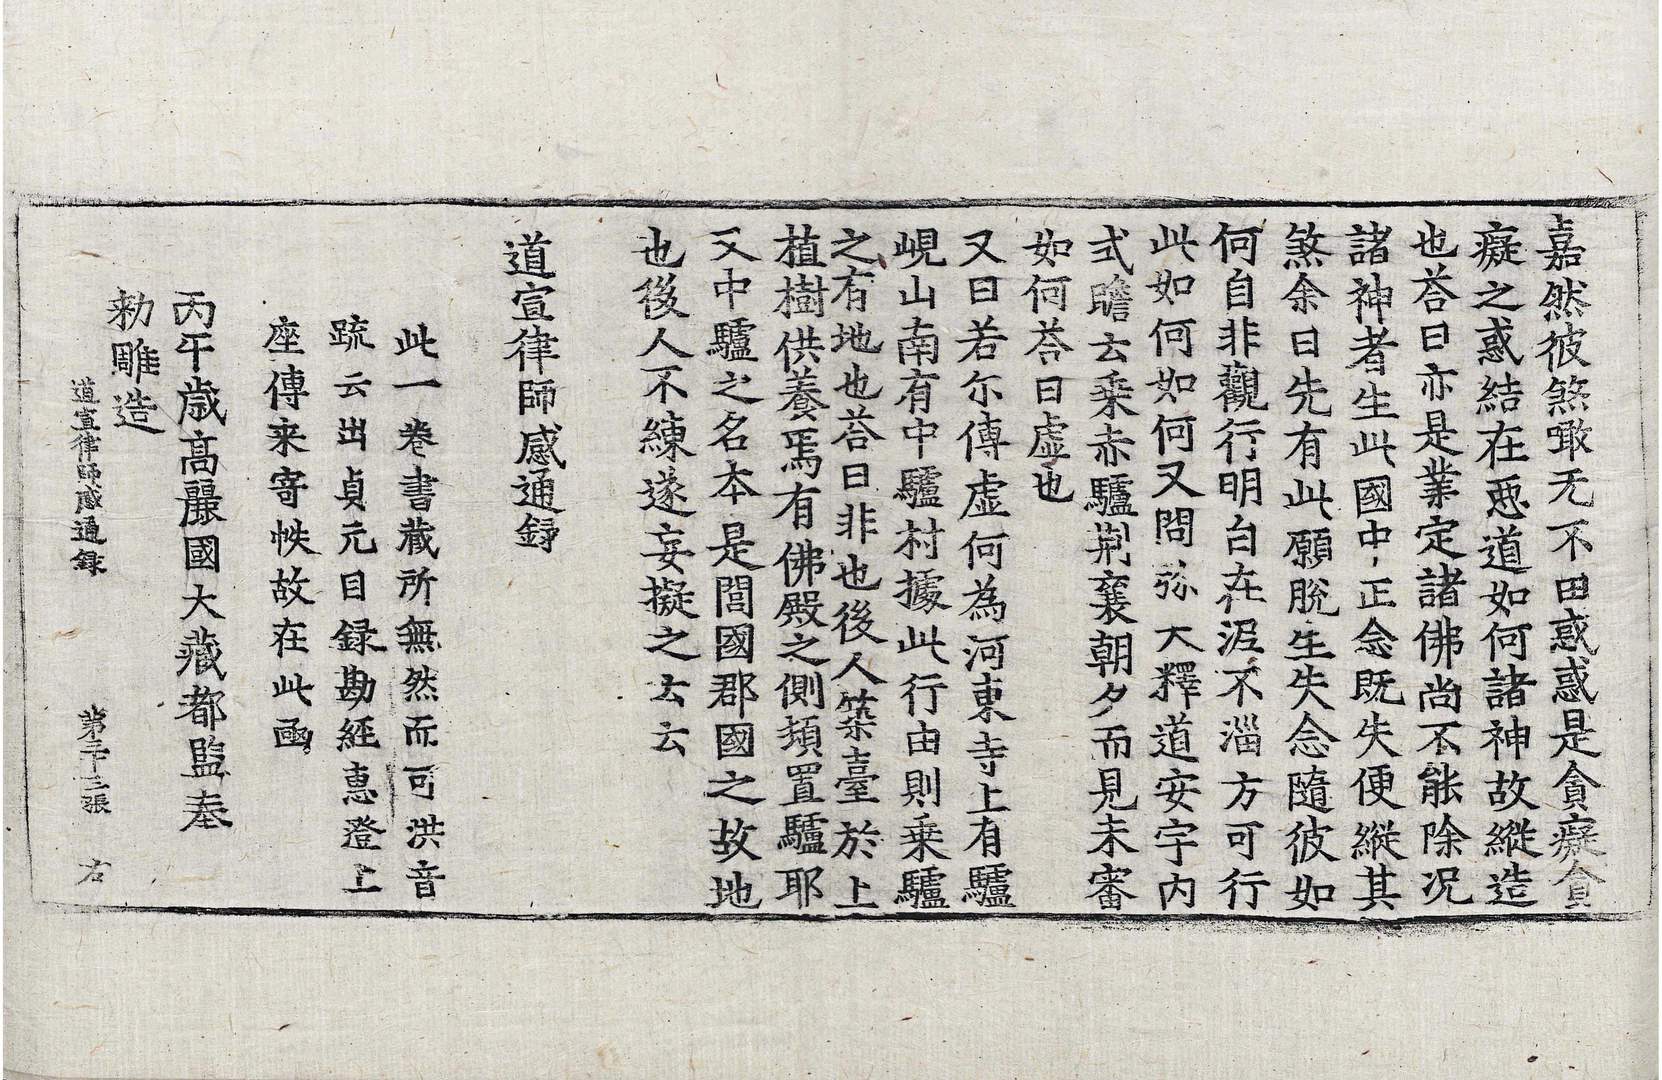 嘉然彼煞噉无不由惑惑是貪癡貪
癡之惑結在惡道如何諸神故縱造
也荅曰亦是業定諸佛尚不能除况
諸神者生此國中正念既失便縱其
煞余曰先有此願脫生失念隨彼如
何自非觀行明白在涅不淄方可行
此如何如何又問弥大釋道安字内
式瞻云乗赤驢荊襄朝夕而見未審
如何荅曰虚也
又曰若尓傳虚何為河東寺上有驢
峴山南有中驢村據此行由則乗驢
之有地也荅曰非也後人築臺於上
植樹供養焉有佛殿之側頻置驢耶
又中驢之名本是閭國郡國之故地
也後人不練遂妄擬之云云
道宣律師感通録
此一卷書藏所無然而可洪音
疏云出貞元目録勘經惠澄上
座傳来寄帙故在此函
丙午歳高麗國大藏都監奉
勅雕造
道宣律師感通録 第二十三張 右